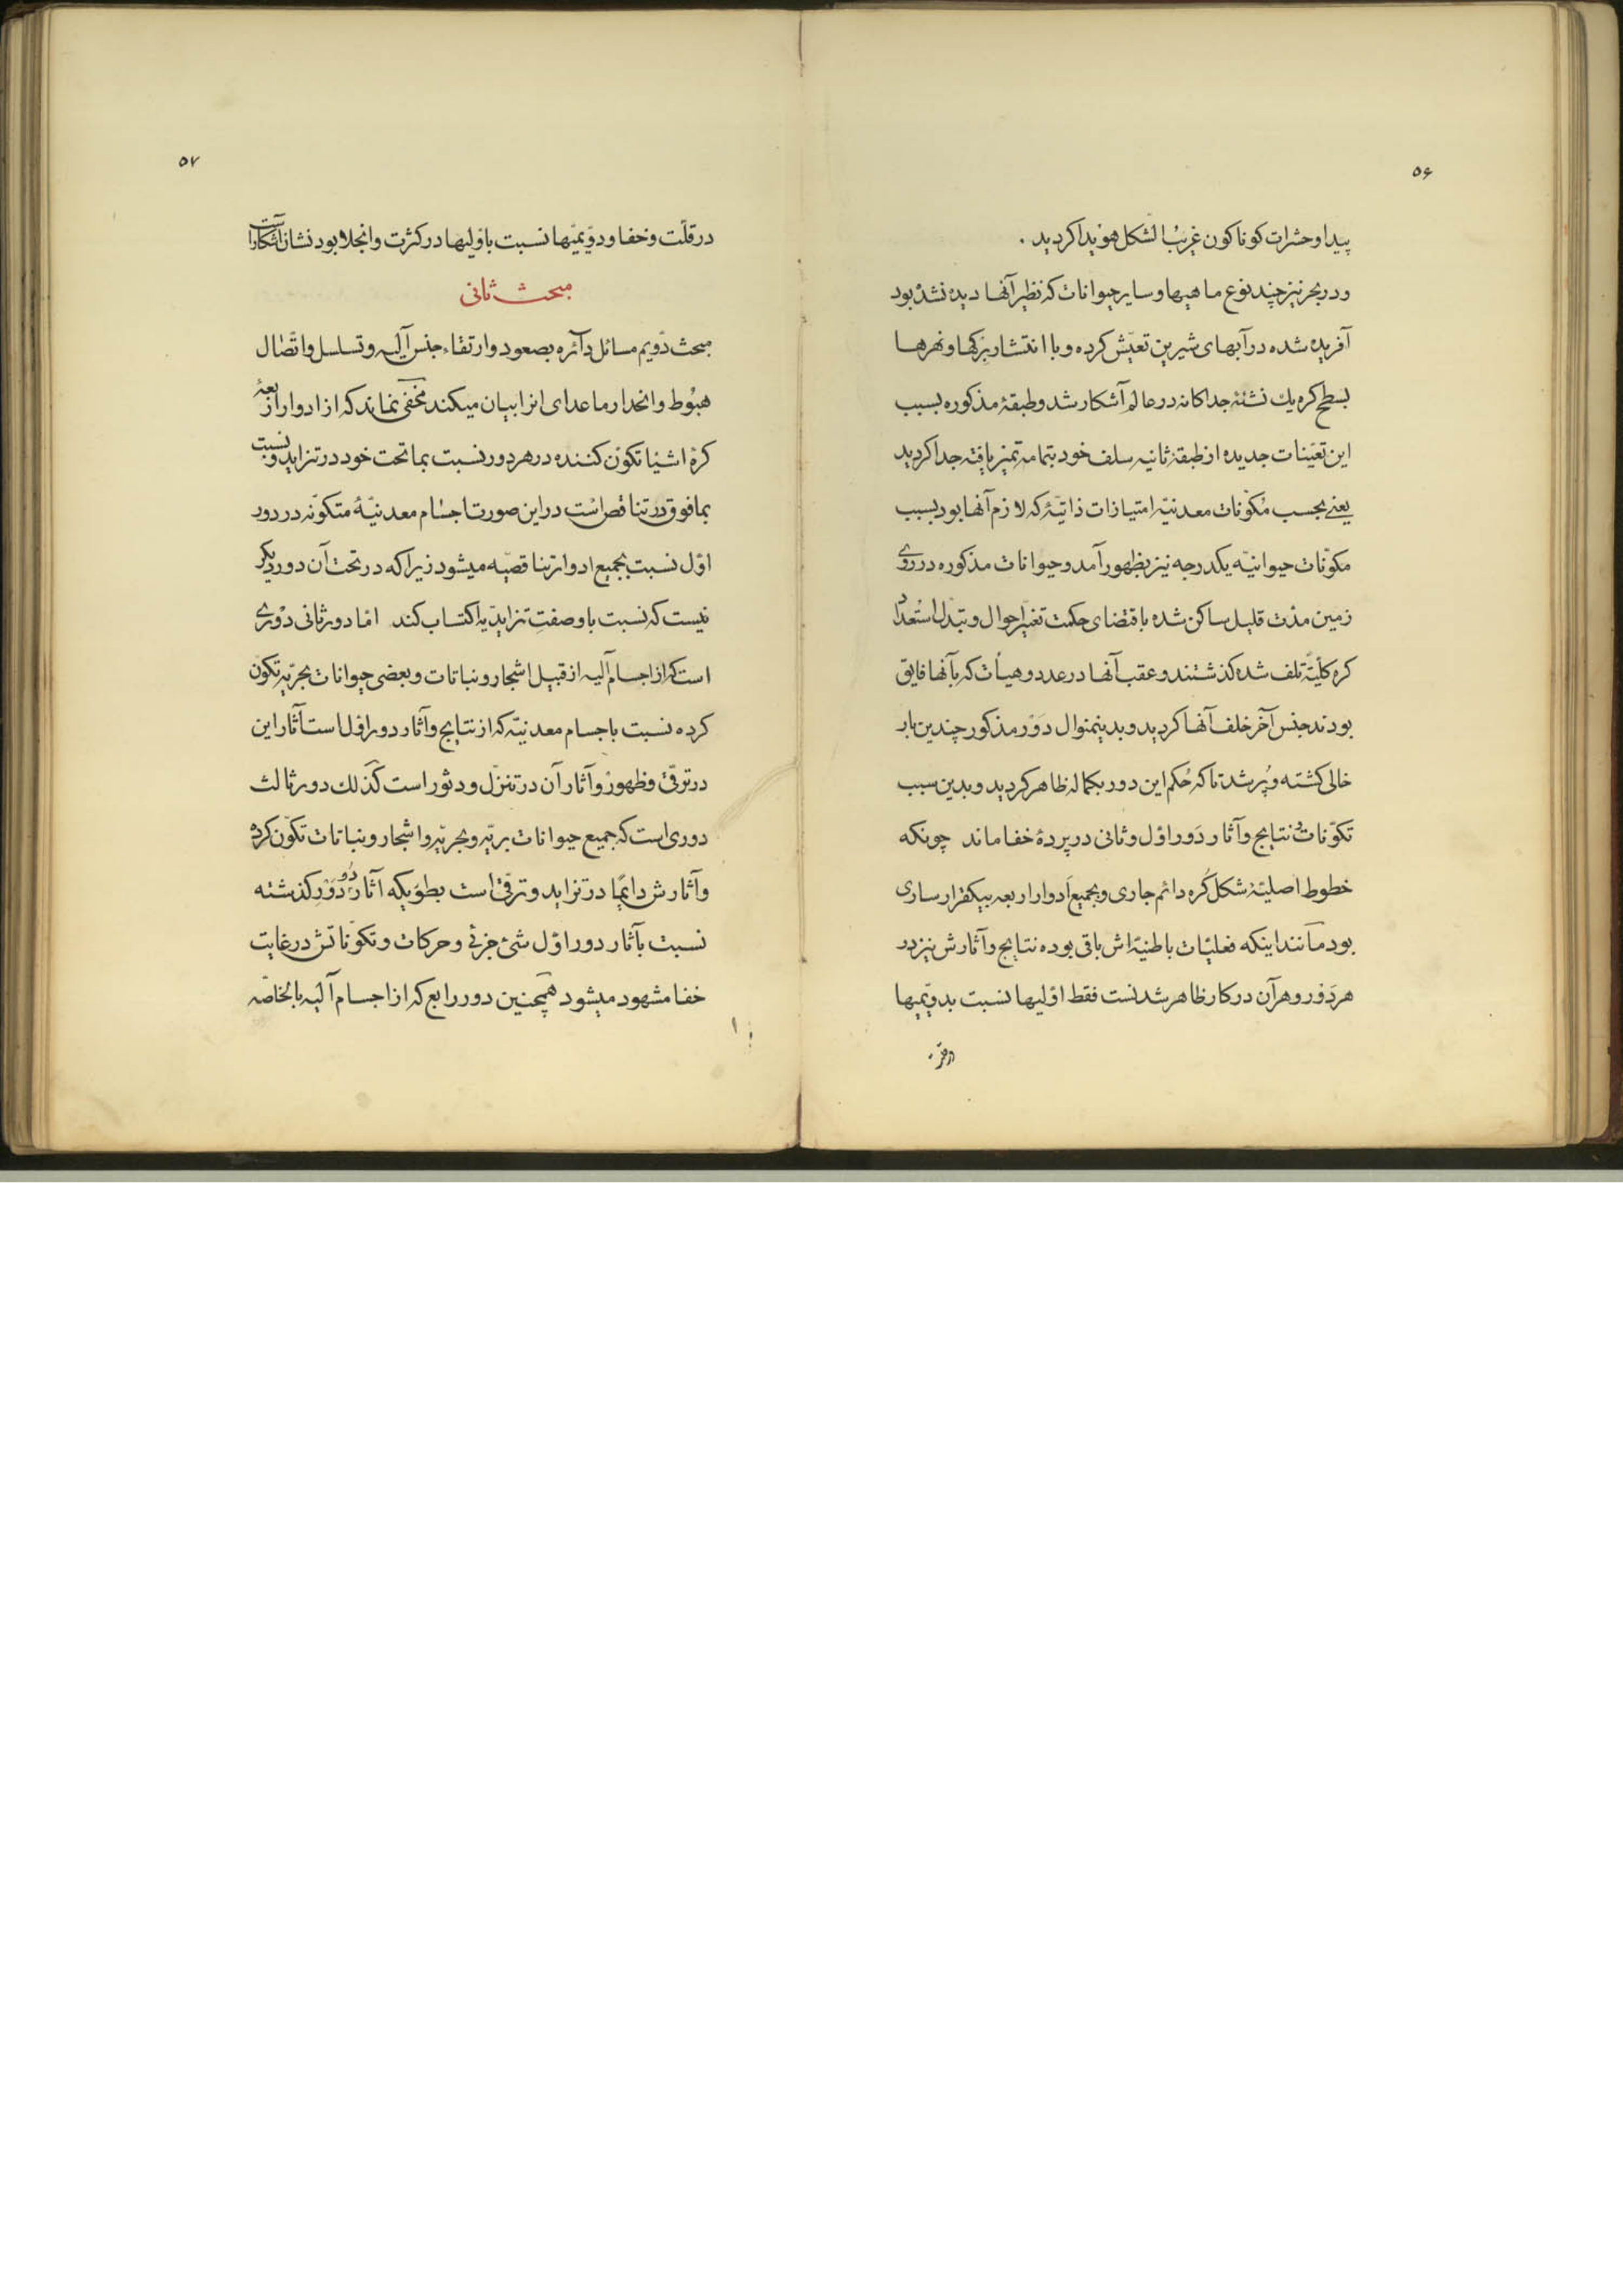 ۵۶
پیدا و حشرات کوناکون غریب الشکل هویدا کردید .
و در بحر نیز چند نوع ماهیها و سایر حیوانات که نظیر آنها دیده نشده بود
آفریده شده در آبهای شیرین تعیّش کرده و با انتشار برکها و نهرها
بسطح کره یك نشئهٔ جداکانه در عالم آشکار شد و طبقهٔ مذکوره بسبب
این تعیّنات جدیده از طبقهٔ ثانیه سلف خود بتمامه تمیز یافته جدا کردید
یعنی بحسب مُکوّنات معدنیّه امتیازات ذاتیّهٔ که لازم آنها بود بسبب
مکوّنات حیوانیّه یکدرجه نیز بظهور آمد و حیوانات مذکوره در روی
زمین مدّت قلیل ساکن شده باقتضای حکمت تغیّر احوال و تبدّل استعداد
کره کلّیّةً تلف شده کذشتند و عقب آنها در عدد و هیأت که بآنها فایق
بودند جنس آخر خلف آنها کردید و بدینمنوال دَوْر مذکور چندین بار
خالی کشته و پُر شد تا که حُکم این دور بکماله ظاهر کردید و بدین سبب
تکوّنات و نتایج و آثار دَور اوّل و ثانی در پردهٔ خفا ماند چونکه
خطوط اصلیّهٔ شکل کره دائم جاری و بجمیع اَدوار اربعه بیکقرار ساری
بود مانند اینکه فعلیّات باطنیّه‌اش باقی بوده نتایج و آثارش نیز در
هر دَوْر و هر آن در کار ظاهر شدنست فقط اوّلیها نسبت بدوّیمیها
در قلّت
۵۷
در قلّت و خفا و دوّیمیّها نسبت باوّلیها در کثرت و انجلا بود نشان آشکارا است
مبحث ثانی
مبحث دوّیم مسائل دآئره بصعود و ارتقاء جنس آلیه و تسلسل و اتّصال
هبُوط و انحدار ماعدای انرا بیان میکند مخفی نماند که از ادوار اربعهٔ
کرهٔ اشیا تکوّن کننده در هر دور نسبت بماتحت خود در تزاید و نسبت
بمافوق در تناقص است در این صورت اجسام معدنیّهٔ متکوّنه در دور
اوّل نسبت بجمیع ادوار تناقصیّه میشود زیرا که در تحت آن دور دیکر
نیست که نسبت باو صفتِ تزایدّیه اکتساب کند امّا دور ثانی دَوْری
است که از اجسام آلیه از قبیل اشجار و نباتات و بعضی حیوانات بحریّه تکوّن
کرده نسبت باجسام معدنیّه که از نتایج و آثار دور اوّل است آثار این
در ترقّی و ظهور و آثار آن در تنزّل و دثور است کَذلك دور ثالث
دوری است که جمیع حیوانات بریّه و بحریّه و اشجار و نباتات تکوّن کرده
و آثارش دایمًا در تزاید و ترقّی است بطوریکه آثار دُو دَوْرِ کذشته
نسبت بآثار دور اوّل شیٔ جزئی و حرکات و تکوّناتش در غایت
خفا مشهود میشود همچنین دور رابع که از اجسام آلیه بالخاصّه